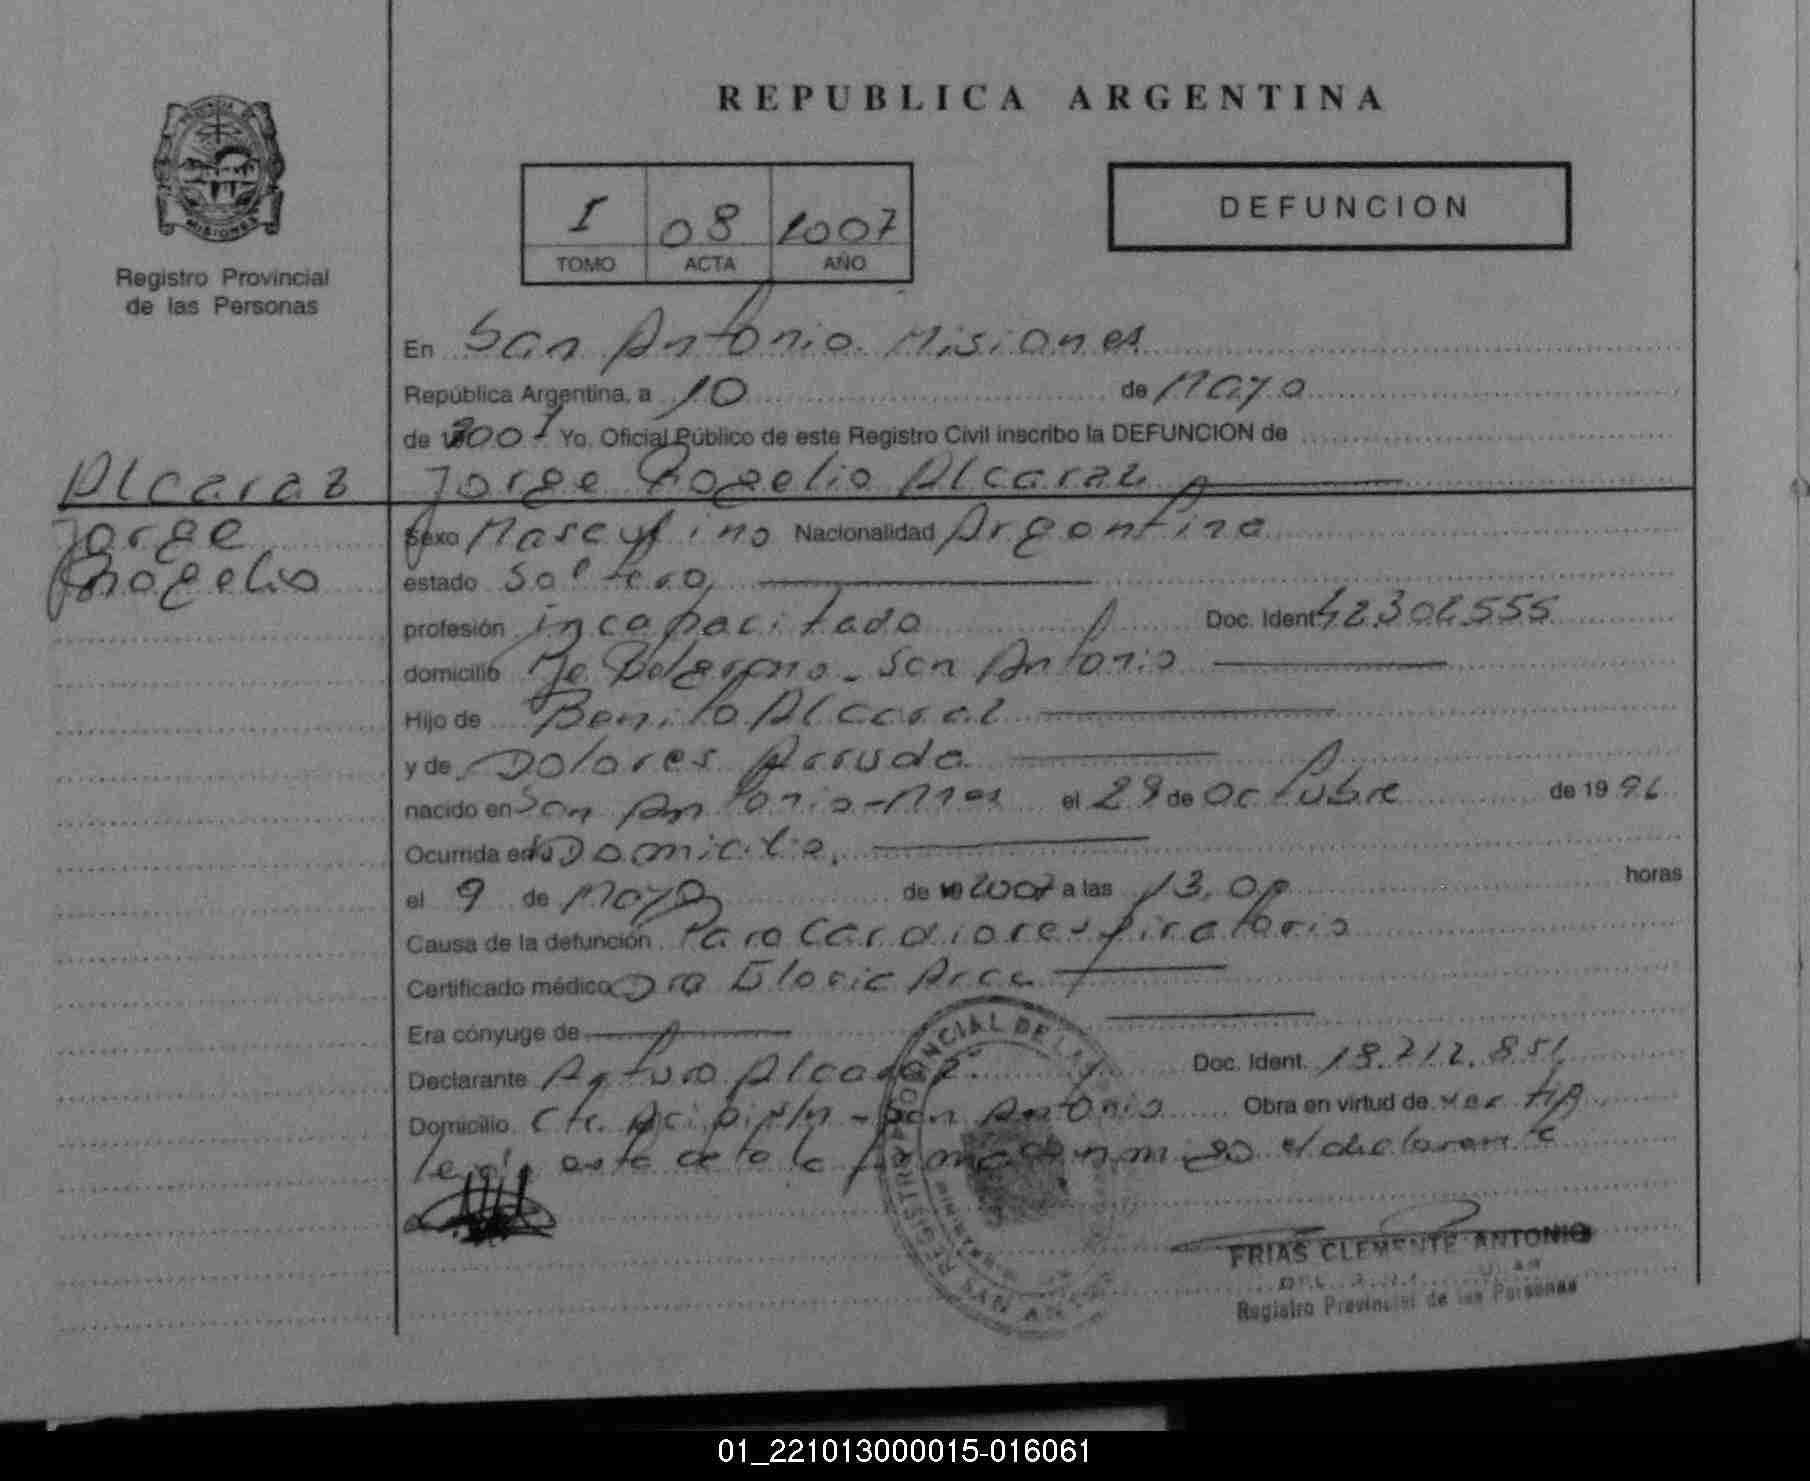 REPUBLICA ARGENTINA
MISIONES
Registro Provincial
de las Personas
I 08 2007
TOMO ACTA AÑO
DEFUNCION
En San Antonio Misiones
República Argentina, a 10 de Mayo
de 2007 Yo, Oficial Público de este Registro Civil inscribo la DEFUNCION de
Alcaraz
Jorge
Rogelio
Jorge Rogelio Alcaraz
Sexo Masculino Nacionalidad Argentina
estado Soltero,
profesión incapacitado Doc. Ident. 42.302.555
domicilio Je Belgrano - San Antonio
Hijo de Benito Alcaraz
y de Dolores Arruda
nacido en San Antonio - Mnes el 29 de Octubre de 1996
Ocurrida en su Domicilio,
el 9 de Mayo de 2007 a las 13,00 horas
Causa de la defunción Paro Cardiorespiratorio
Certificado médico Dra Gloria Arce
Era cónyuge de
Declarante Arturo Alcaraz Doc. Ident. 18.712.851
Domicilio Cte. s/n - San Antonio Obra en virtud de
leida esta acta la firma conmigo el declarante
REGISTRO PROVINCIAL DE LAS
SAN AN
FRIAS CLEMENTE ANTONIO
Registro Provincial de las Personas
01_221013000015-016061